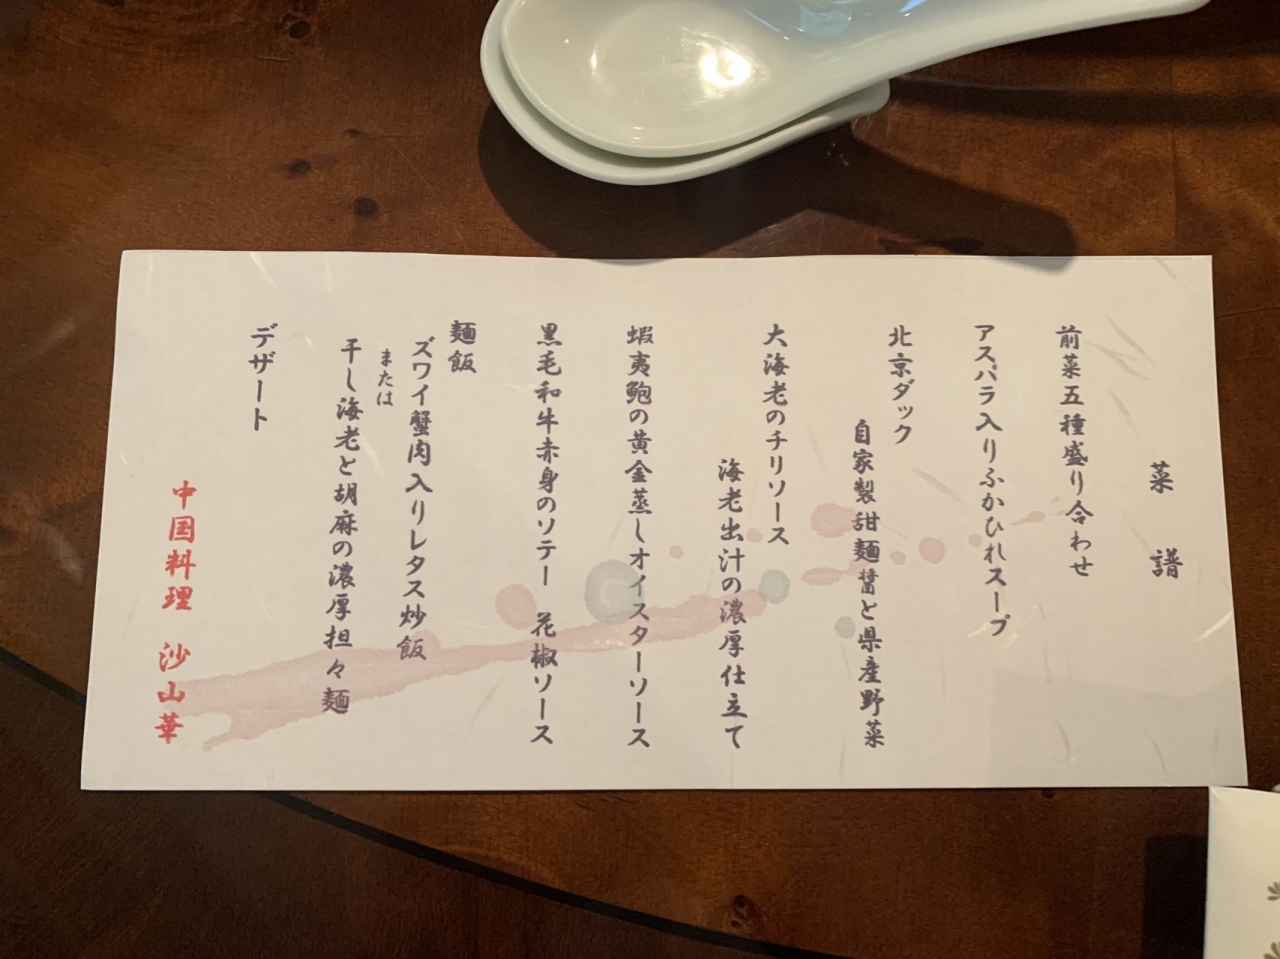 菜譜
前菜五種盛り合わせ
アスパラ入りふかひれスープ
北京ダック
自家製甜麺醤と県産野菜
大海老のチリソース
海老出汁の濃厚仕立て
蝦夷鮑の黄金蒸しオイスターソース
黒毛和牛赤身のソテー 花椒ソース
麺飯
ズワイ蟹肉入りレタス炒飯
または
干し海老と胡麻の濃厚担々麺
デザート
中国料理 沙山華